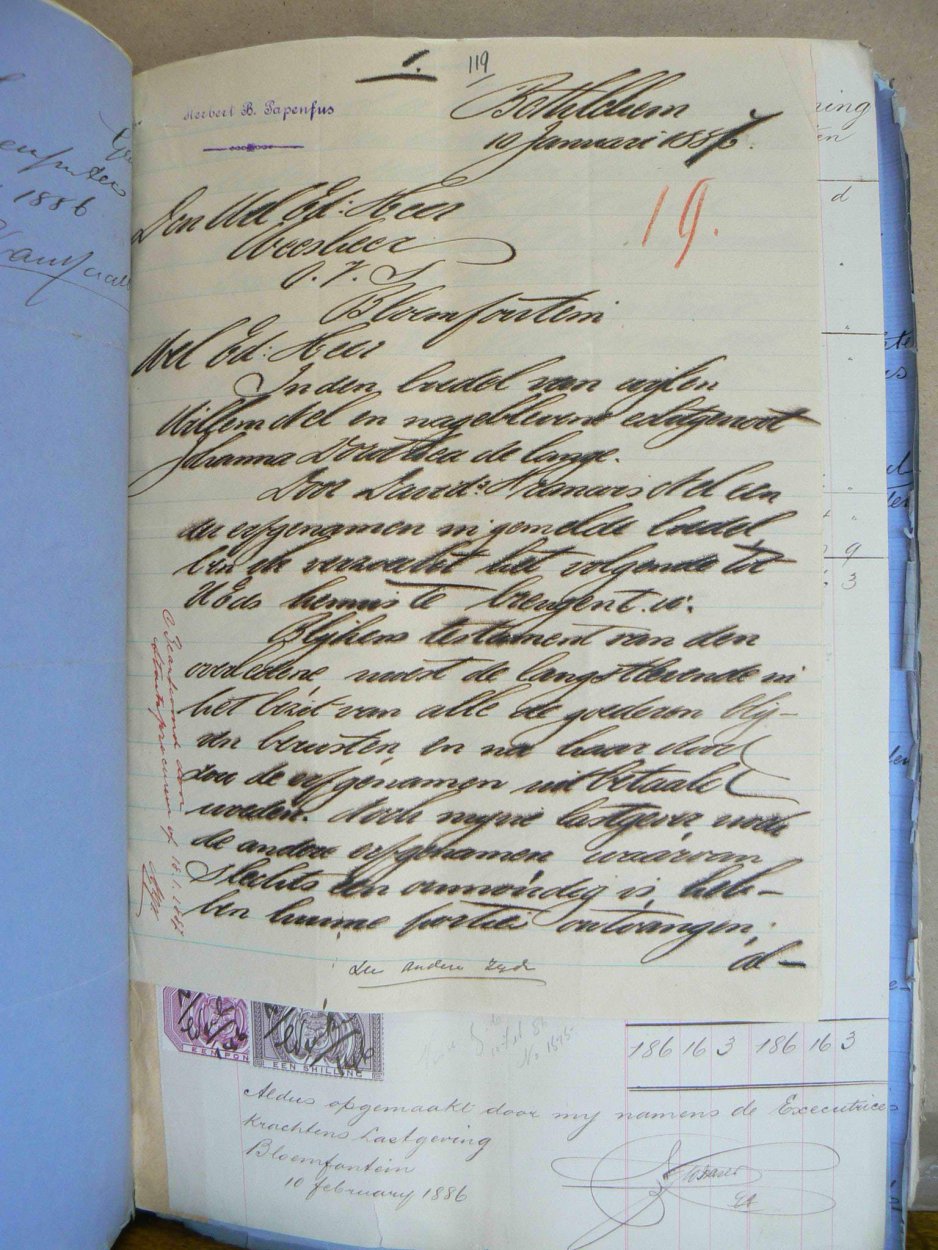 1.
119
Herbert B. Papenfus
Bethlehem
10 Januari 1887.
19.
Den Wel Ed: Heer
Weesheer
O. V. S
Bloemfontein
Wel Ed: Heer
In den boedel van wijlen
Willem Nel en nagebleven echtgenoot
Johanna Dorothea de Lange.
Door David: Hermanus Nel een
der erfgenamen in gemelde boedel,
ben ik verzocht het volgende tot
UEds kennis te brengen t. w:
Blijkens testament van den
overledene moest de langstlevende in
het bezit van alle de goederen blij-
ven berusten, en na haar dood
zou de erfgenamen uitbetaald
worden. doch mijne lastgever noch
de andere erfgenamen waarvan
Slechts een onmondig is, heb-
ben hunne portie ontvangen;
al-
Zie andere zyde
Beantwoord door
Staatsprocureur of 18.1.1887
EEN PON
EEN SHILLING
No 1545
186 16 3 186 16 3
Aldus opgemaakt door my namens de Executrice
Krachtens Lastgeving
Bloemfontein
10 february 1886
1886
ning
d
9
3